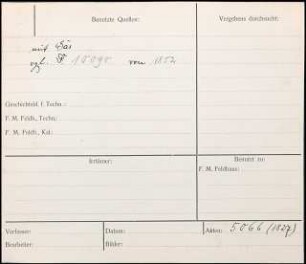 Benutzte Quellen:
Vergebens durchsucht:
mit Gas
vgl. P. 15090 von 1852
Geschichtsbl. f. Techn.:
F. M. Feldh., Techn.:
F. M. Feldh., Kal.:
Irrtümer:
Benutzt in:
F. M. Feldhaus:
Verfasser:
Datum:
Akten: 5066 (1827)
Bearbeiter:
Bilder: